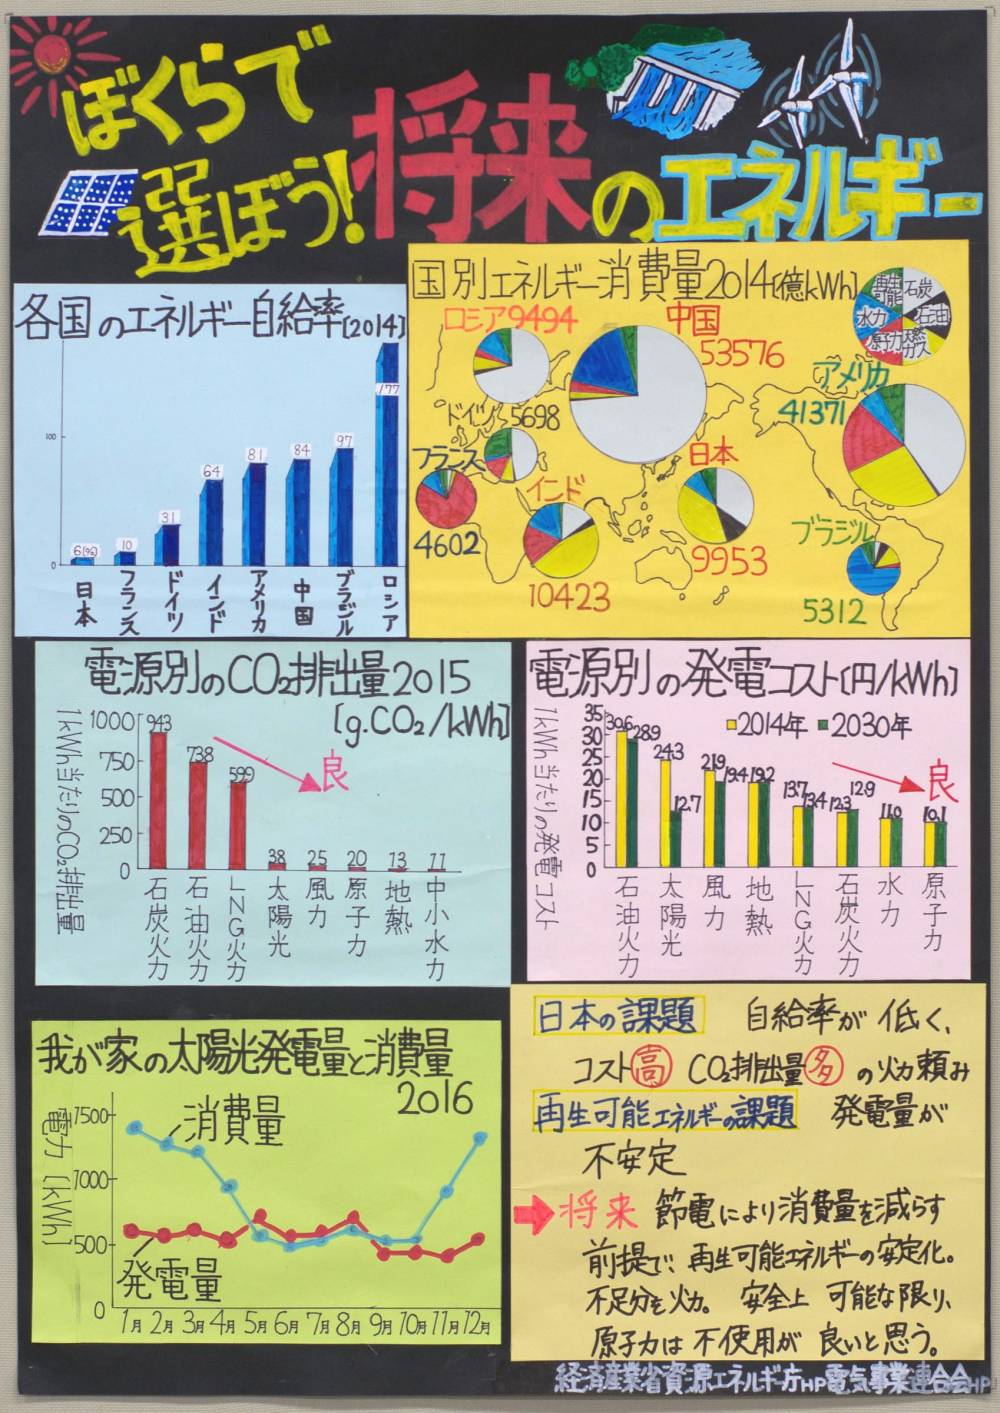 ぼくらで
選ぼう!将来のエネルギー
各国のエネルギー自給率[2014]
100
0
6(%)
10
31
64
81
84
97
177
日本
フランス
ドイツ
インド
アメリカ
中国
ブラジル
ロシア
国別エネルギー消費量2014[億kWh]
再生可能
石炭
水力
石油
原子力
天然ガス
ロシア9494
中国
53576
アメリカ
41371
ドイツ
5698
フランス
4602
インド
10423
日本
9953
ブラジル
5312
電源別のCO2排出量2015
[g.CO2/kWh]
1kWh当たりのCO2排出量
1000
750
500
250
0
943
738
599
38
25
20
13
11
良
石炭火力
石油火力
LNG火力
太陽光
風力
原子力
地熱
中小水力
電源別の発電コスト[円/kWh]
1kWh当たりの発電コスト
35
30
25
20
15
10
5
0
2014年 2030年
30.6
28.9
24.3
12.7
21.9
19.4
19.2
13.7
13.4
12.3
12.9
11.0
10.1
良
石油火力
太陽光
風力
地熱
LNG火力
石炭火力
水力
原子力
我が家の太陽光発電量と消費量
2016
電力[kWh]
1500
1000
500
0
消費量
発電量
1月 2月 3月 4月 5月 6月 7月 8月 9月 10月 11月 12月
日本の課題 自給率が低く、
コスト高 CO2排出量多の火力頼み
再生可能エネルギーの課題 発電量が
不安定
将来 節電により消費量を減らす
前提で、再生可能エネルギーの安定化。
不足分を火力。安全上 可能な限り、
原子力は不使用が良いと思う。
経済産業省資源エネルギー庁HP電気事業連合会HP